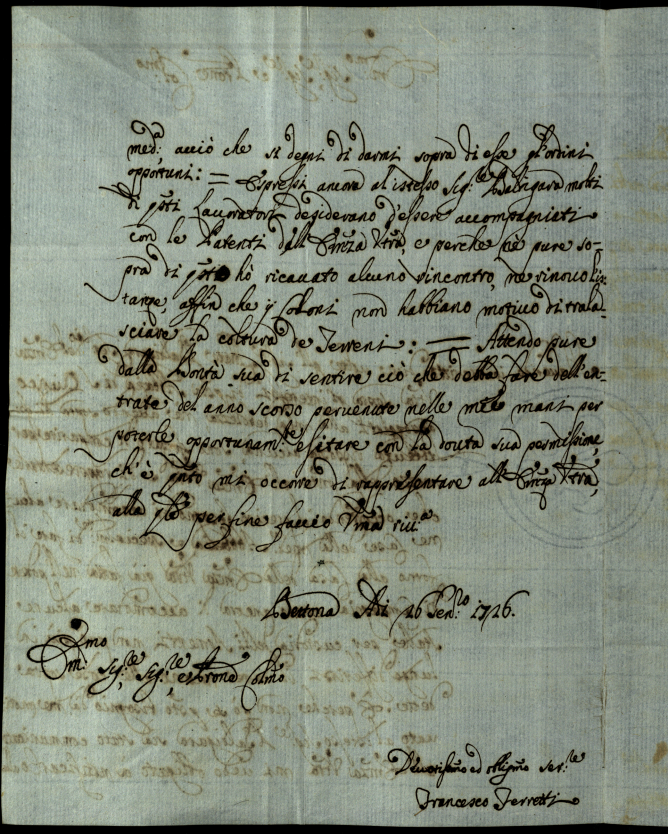 med:ª acciò che si degni di darmi sopra di esse gl'ordini
opportuni: = Espressi ancora al istesso Sig:re Baldigara molti
di q̃sti Lavoratori desiderano d'essere accompagniati
con le Patenti dall' Em̃za Vr̃a, e perche ne pure so-
pra di q̃sto hò ricavato alcuno rincontro, ne rinovo l'is-
tanze, affin che i Coloni non habbiano motivo di trala-
sciare la coltura de Terreni: = Attendo pure
dalla Bontà sua di sentire ciò che debba fare dell'en-
trate del anno scorso pervenute nelle mie mani per
poterle opportunam:te esitare con la dovuta sua permissione,
ch'è q̃nto mi occorre di rappresentare all' Em̃za Vr̃a,
alla q̃le per fine faccio Um̃a riv:ª
Bettona Adi 26 Gen:ro 1726.
Em:mo Sig:re, Sig:re e Prone Colmo
Devotissmo ed obligmo Ser:re
Francesco Ferretti